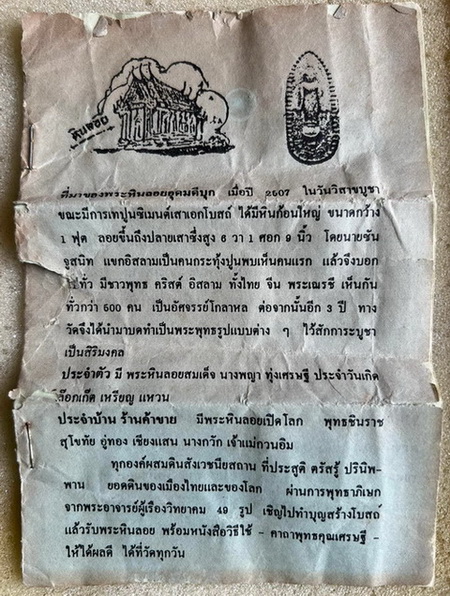 หินลอย
ที่มาของพระหินลอยอุดมดีบุก เมื่อปี 2507 ในวันวิสาขบูชา
ขณะมีการเทปูนซิเมนต์เสาเอกโบสถ์ ได้มีหินก้อนใหญ่ ขนาดกว้าง
1 ฟุต ลอยขึ้นถึงปลายเสาซึ่งสูง 6 วา 1 ศอก 9 นิ้ว โดยนายซัน
จูสนิท แขกอิสลามเป็นคนกระทุ้งปูนพบเห็นคนแรก แล้วจึงบอก
ทั่ว มีชาวพุทธ คริสต์ อิสลาม ทั้งไทย จีน พระเณรชี เห็นกัน
ทั่วกว่า 500 คน เป็นอัศจรรย์โกลาหล ต่อจากนั้นอีก 3 ปี ทาง
วัดจึงได้นำมาบดทำเป็นพระพุทธรูปแบบต่าง ๆ ไว้สักการะบูชา
เป็นสิริมงคล
ประจำตัว มี พระหินลอยสมเด็จ นางพญา ทุ่งเศรษฐี ประจำวันเกิด
ล๊อกเก็ต เหรียญ แหวน
ประจำบ้าน ร้านค้าขาย มีพระหินลอยเปิดโลก พุทธชินราช
สุโขทัย อู่ทอง เชียงแสน นางกวัก เจ้าแม่กวนอิม
ทุกองค์ผสมดินสังเวชนียสถาน ที่ประสูติ ตรัสรู้ ปรินิพ-
พาน ยอดดินของเมืองไทยและของโลก ผ่านการพุทธาภิเษก
จากพระอาจารย์ผู้เรืองวิทยาคม 49 รูป เชิญไปทำบุญสร้างโบสถ์
แล้วรับพระหินลอย พร้อมหนังสือวิธีใช้ - คาถาพุทธคุณเศรษฐี -
ให้ได้ผลดี ได้ที่วัดทุกวัน